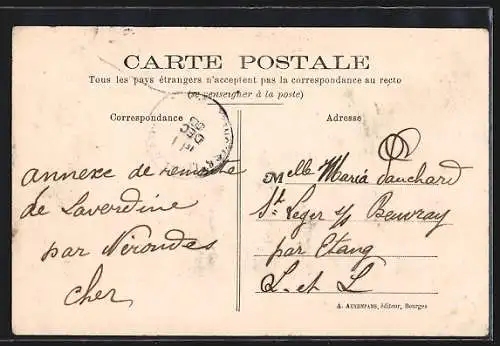 CARTE POSTALE
Tous les pays étrangers n'acceptent pas la correspondance au recto
(se renseigner à la poste)
Correspondance
Adresse
DEC
annexe de remonte
de Laverdine
par Nérondes
Cher
Melle Maria Pauchard
St Leger s/s Beuvray
par Etang
S. et L
A. AUXENFANS, éditeur, Bourges